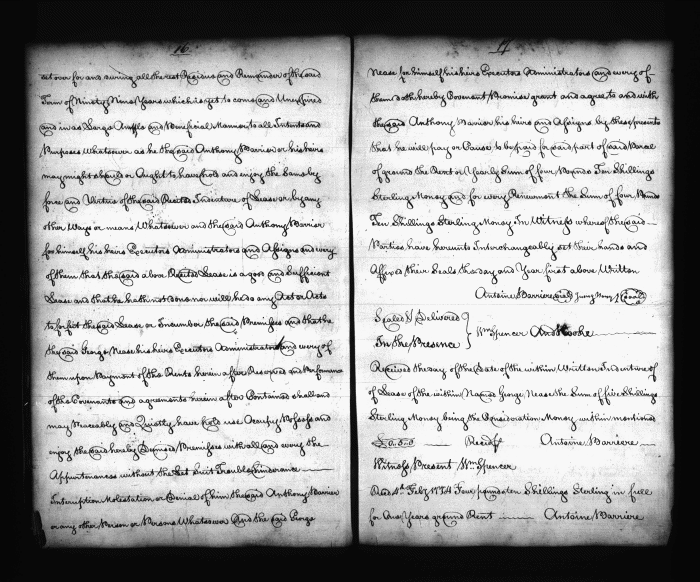 16
set over for and during all the rest Residue and Remainder of the said
Term of Ninety Nine Years which is yet to come and Unexpired
and in as Large Ample and Beneficial Manner to all Intents and
Purposes Whatsoever as he the said Anthony Barrier or his heirs
may might should or Ought to have hold and enjoy the Same by
force and Virtue of the said Recited Indenture of Lease or by any
other Ways or means Whatsoever and the said Anthony Barrier
for himself his heirs Executors Administrators and Assigns and every
of them that the said above Recited Lease is a good and Sufficient
Lease and that he hath not done nor will he do any Act or Acts
to forfeit the said Lease or Incumber the said Premises and that he
the said George Nease his heirs Executors Administrators and every of
them upon Payment of the Rents herein after Reserved and Performance
of the Covenants and agreements herein after Contained shall and
may Peaceably and Quietly have hold use Occupy Possess and
enjoy the said hereby Demised Premisses with all and every the
Appurtenances without the Let Suit Trouble hinderance
Interruption Molestation or Denial of him the said Anthony Barrier
or any other Person or Persons Whatsoever And the said George
17
Nease for himself his heirs Executors Administrators and every of
them doth hereby Covenant Promise grant and agree to and with
the said Anthony Barrier his heirs and Assigns by these presents
that he will pay or Cause to be paid for said part of said Parcel
of ground the Rent or Yearly Sum of four Pounds Ten Shillings
Sterling Money and for every Renewment the Sum of four Pounds
Ten Shillings Sterling Money In Witness whereof the said
Parties have hereunto Interchangeably set their hands and
Affixed their Seals the day and Year first above Written
Antoine Barriere
Sealed & Delivered
In the Presence } Wm Spencer
Received the day of the Date of the within Written Indenture of
of Lease of the within Named George Nease the Sum of five Shillings
Sterling Money being the Consideration Money within mentioned
£0.5.0 Recd Antoine Barriere
Witness Present Wm Spencer
Recd Feby 1774 Four pounds ten Shillings Sterling in full
for One Years ground Rent Antoine Barriere